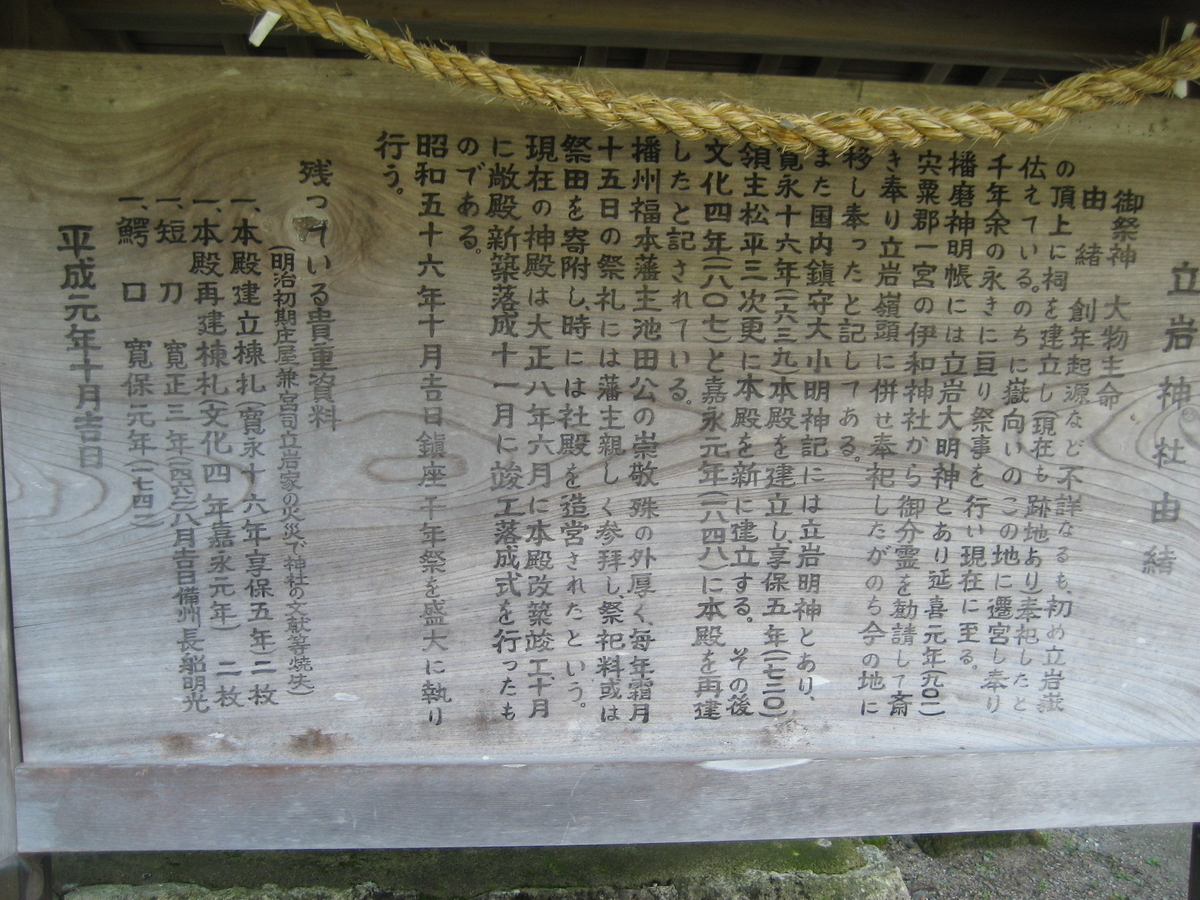 立岩神社由緒
御祭神 大物主命
由緒 創年起源など不詳なるも、初め立岩嶽
の頂上に祠を建立し(現在も跡地あり)奉祀したと
伝えている。のちに嶽向いのこの地に遷宮し奉り
千年余の永きに亘り祭事を行い現在に至る。
播磨神明帳には立岩大明神とあり延喜元年(九〇一)
宍粟郡一宮の伊和神社から御分霊を勧請して斎
き奉り立岩嶺頭に併せ奉祀したがのち今の地に
移し奉ったと記してある。
また国内鎮守大小明神記には立岩明神とあり、
寛永十六年(一六三九)本殿を建立し、享保五年(一七二〇)
領主松平三次更に本殿を新に建立する。その後
文化四年(一八〇七)と嘉永元年(一八四八)に本殿を再建
したと記されている。
播州福本藩主池田公の崇敬殊の外厚く、毎年霜月
十五日の祭礼には藩主親しく参拝し、祭祀料或は
祭田を寄附し、時には社殿を造営されたという。
現在の神殿は大正八年六月に本殿改築竣工、十月
に敞殿新築落成十一月に竣工落成式を行ったも
のである。
昭和五十六年十月吉日鎮座千年祭を盛大に執り
行う。
残っている貴重資料
(明治初期庄屋兼宮司立岩家の火災で神社の文献等焼失)
一、本殿建立棟札(寛永十六年享保五年)二枚
一、本殿再建棟札(文化四年嘉永元年)二枚
一、短刀 寛正三年(一四六二)八月吉日備州長船明光
一、鰐口 寛保元年(一七四一)
平成元年十月吉日